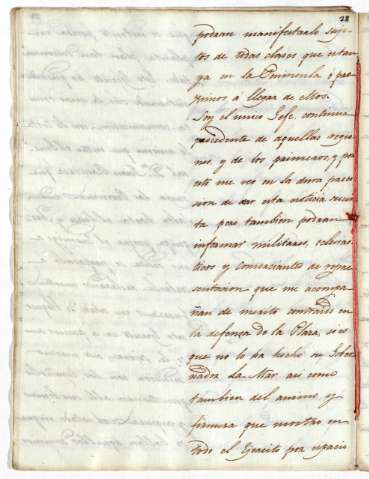 28
podran manifestarlo suje-
tos de todas clases que este
ya en la Peninsula ó pro-
ximos á llegar de Mos.
Soy el unico Jefe, con
procedente de aquellas regio-
nes, y de los primeros, y por
esto me veo en la dura preci-
sion de dar esta noticia
pero tambien podran
informar militares, eclesias-
ticos y comerciantes de repre-
sentacion que me acompa-
ñan de merito contraido en
la defensa de la Plaza, si es
que no lo ha hecho su Gober-
nador La Mar, asi como
tambien del animo y
firmeza que mostró en
todo el Ejercito por espacio